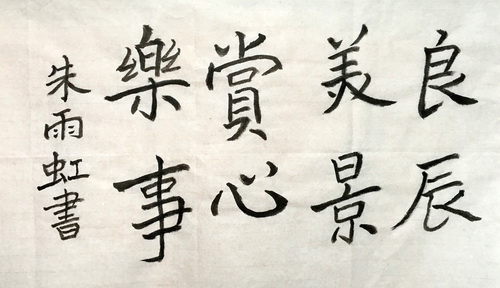 良辰
美景
賞心
樂事
朱雨虹書